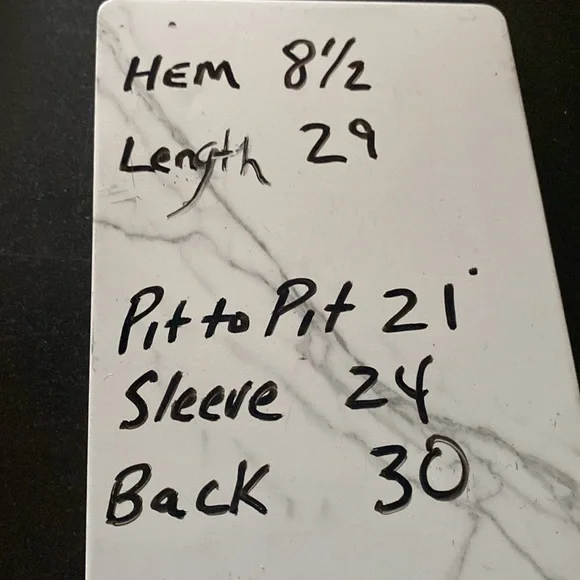 HEM 8½
Length 29
Pit to Pit 21
Sleeve 24
Back 30